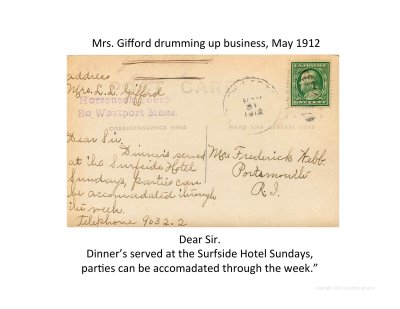 Mrs. Gifford drumming up business, May 1912
address
Mrs. L. L. Gifford
Horseneck Beach
So Westport Mass.
CARD
CORRESPONDENCE HERE
NAME AND ADDRESS HERE
1912
U.S. POSTAGE
ONE CENT
Dear Sir.
Dinner's served
at the Surfside Hotel
Sundays, parties can
be accomadated through
the week.
Telephone 9032-2
Mr. Frederick Webb
Portsmouth
R.I.
Dear Sir.
Dinner's served at the Surfside Hotel Sundays,
parties can be accomadated through the week.”